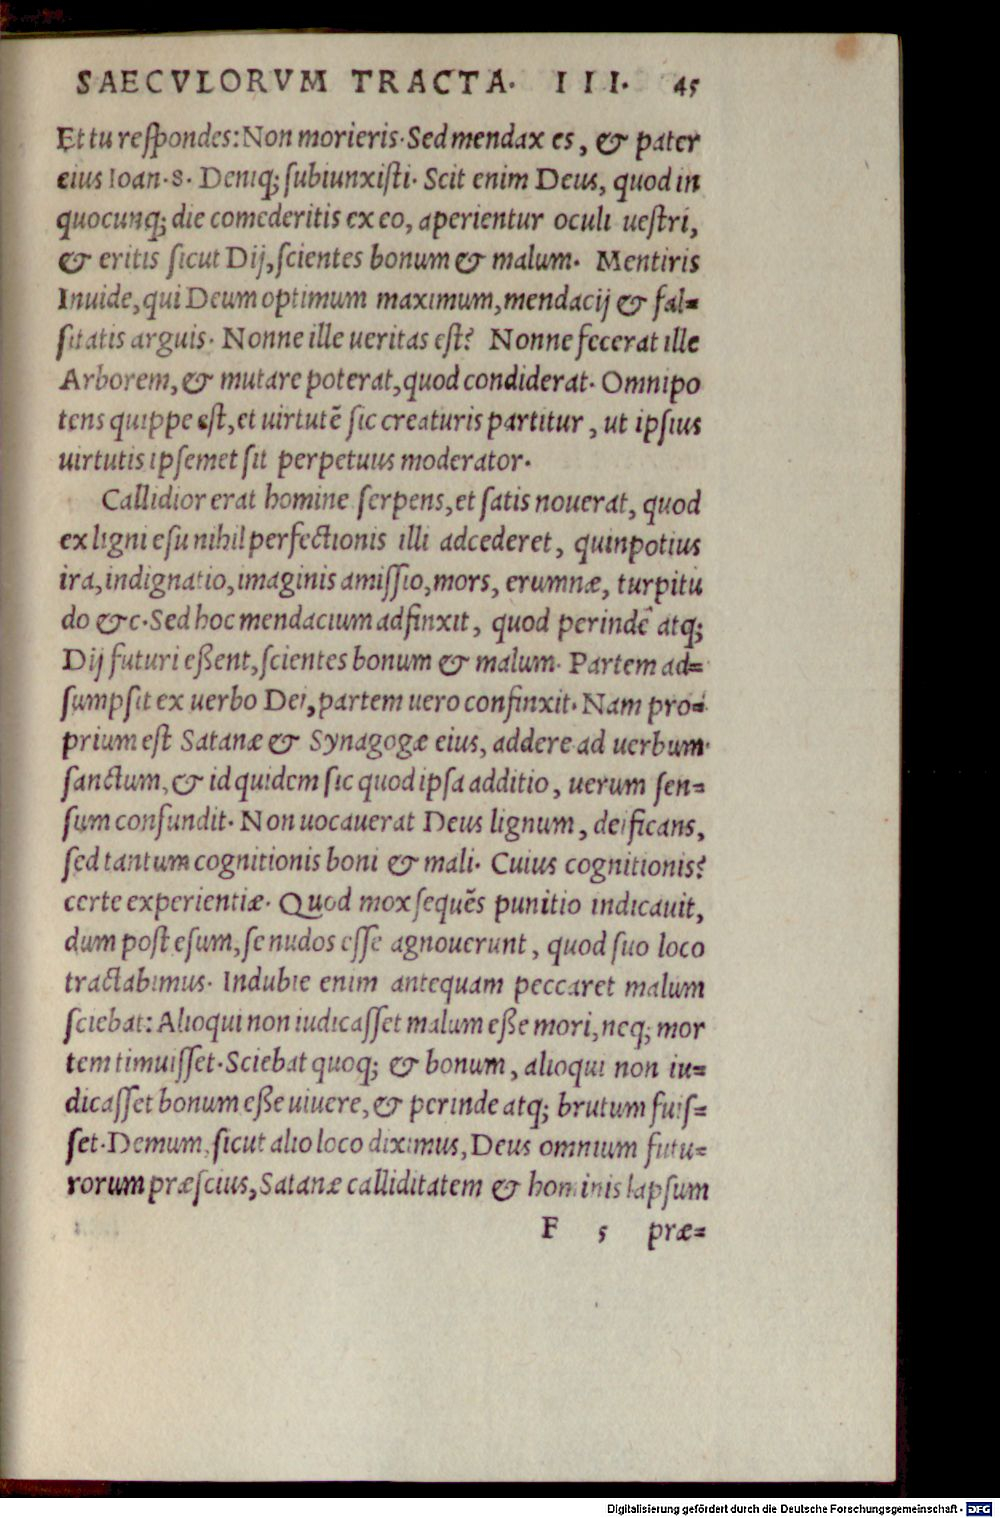 SAECVLORVM TRACTA. III. 45
Et tu respondes: Non morieris. Sed mendax es, & pater
eius Ioan. 8. Deniq; subiunxisti. Scit enim Deus, quod in
quocunq; die comederitis ex eo, aperientur oculi uestri,
& eritis sicut Dij, scientes bonum & malum. Mentiris
Inuide, qui Deum optimum maximum, mendacij & fal=
sitatis arguis. Nonne ille ueritas est? Nonne fecerat ille
Arborem, & mutare poterat, quod condiderat. Omnipo
tens quippe est, et uirtutē sic creaturis partitur, ut ipsius
uirtutis ipsemet sit perpetuus moderator.
Callidior erat homine serpens, et satis nouerat, quod
ex ligni esu nihil perfectionis illi adcederet, quinpotius
ira, indignatio, imaginis amissio, mors, erumnæ, turpitu
do &c. Sed hoc mendacium adfinxit, quod perindē atq;
Dij futuri eßent, scientes bonum & malum. Partem ad=
sumpsit ex uerbo Dei, partem uero confinxit. Nam pro=
prium est Satanæ & Synagogæ eius, addere ad uerbum
sanctum, & id quidem sic quod ipsa additio, uerum sen=
sum confundit. Non uocauerat Deus lignum, deificans,
sed tantum cognitionis boni & mali. Cuius cognitionis?
certe experientiæ. Quod mox sequēs punitio indicauit,
dum post esum, se nudos esse agnouerunt, quod suo loco
tractabimus. Indubie enim antequam peccaret malum
sciebat: Alioqui non iudicasset malum eße mori, neq; mor
tem timuisset. Sciebat quoq; & bonum, alioqui non iu=
dicasset bonum eße uiuere, & perinde atq; brutum fuis=
set. Demum, sicut alio loco diximus, Deus omnium futu=
rorum præscius, Satanæ calliditatem & hominis lapsum
F 5 præ=
Digitalisierung gefördert durch die Deutsche Forschungsgemeinschaft - DFG